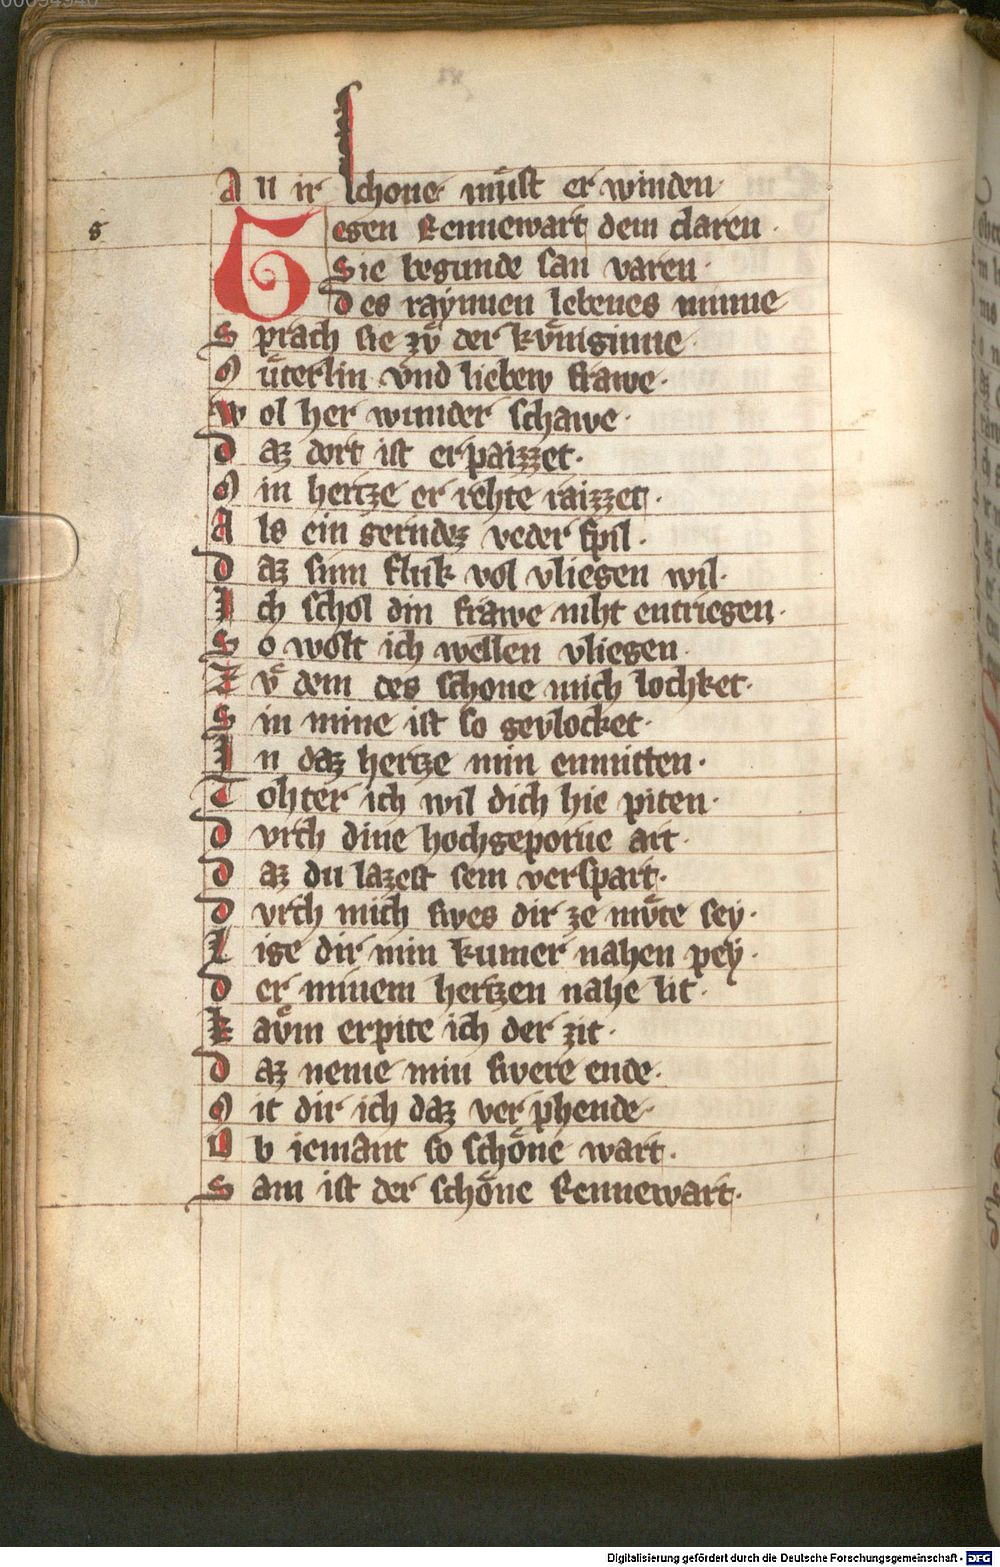 00094940
An ir schone muͤst er winden·
g
Gegen Rennewart dem claren·
Sie begunde san varen·
Des raynnen lebenes mínne
Sprach sie zvͦ der kvͤniginne·
Muͤterlin vnd liebew frawe·
Wol her wunder schawe·
Daz dort ist erpaizzet·
Min hertze er rehte raizzet·
Als ein gerndez veder spil·
Daz sinn fluk vol vliegen wil·
Ich schol din frawe niht entriegen·
So wolt ich wellen vliegen·
Zvͦ dem des schone mich lochket·
Sin mine ist so gevlocket·
In daz hertze min enmitten·
Tohter ich wil dich hie piten·
Dvrch dine hochgeporne art·
Daz du lazest sem verspart·
Dvrch mich swes dir ze mvͦte sey·
Lige dir min kumer nahen pey·
Der minem hertzen nahe lit·
Kavͦm erpite ich der zit·
Daz neme min swere ende·
Mit dir ich daz verphende·
Ob iemant so schoͤne wart·
Sam ist der schoͤne Rennewart·
Digitalisierung gefördert durch die Deutsche Forschungsgemeinschaft - DFG